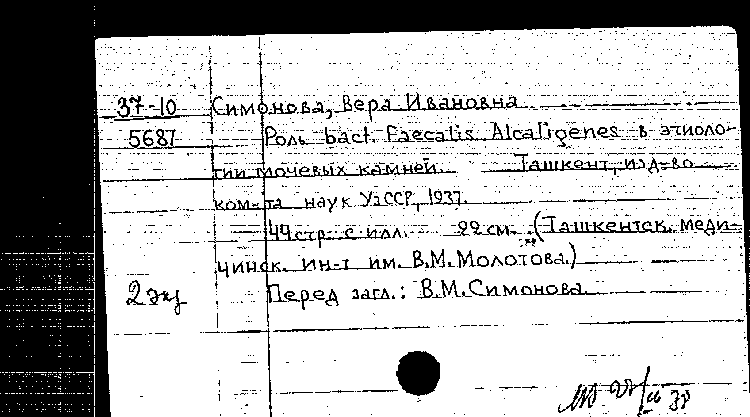 37-10 Симонова, Вера Ивановна
5687 Роль bact. Faecalis Alcaligenes в этиоло-
гии мочевых камней. Ташкент, изд-во
ком-та наук УзССР, 1937.
44 стр. с илл. 22 см. (Ташкентск. меди-
цинск. ин-т им. В.М. Молотова.)
2 экз Перед загл.: В.М. Симонова